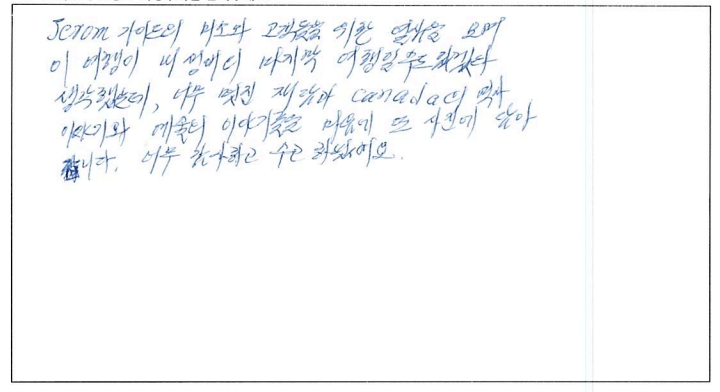 Jerom 가이드의 미소와 고객들을 위한 열심을 보며
이 여행이 내 생애 마지막 여행일 수도 있겠다
생각했는데, 너무 멋진 캐나다 canada의 역사
이야기와 예술의 이야기들을 마음에 또 사진에 담아
갑니다. 너무 감사하고 수고하셨어요.